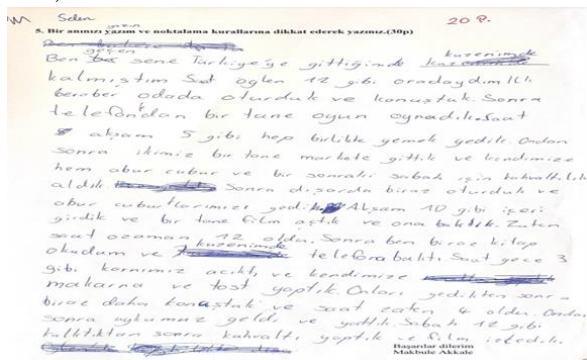 Selen
20 P.
5. Bir anınızı yazım ve noktalama kurallarına dikkat ederek yazınız.(30p)
yazın
geçen kuzenimde
Ben sene Türkiyeye gittiğimde
kalmıştım Saat öğlen 12 gibi oradaydım İki
beraber odada oturduk ve konuştuk. Sonra
telefondan bir tane oyun oynadık. Saat
akşam 5 gibi hep birlikte yemek yedik. Ondan
sonra ikimiz bir tane markete gittik ve kendimize
hem abur cubur ve bir sonraki sabah için kahvaltılık
aldık. Sonra dışarda biraz oturduk ve
abur cuburlarımızı yedik Akşam 10 gibi içeri
girdik ve bir tane film açtık ve ona baktık. Zaten
saat ozaman 12 oldu. Sonra ben biraz kitap
okudum ve kuzenimde telefona baktı. Saat gece 3
gibi karnımız acıktı ve kendimize
makarna ve tost yaptık. Onları yedikten sonra
biraz daha konuştuk ve saat zaten 4 oldu. Ondan
sonra uykumuz geldi ve yattık. Sabah 12 gibi
kalktıktan sonra kahvaltı yaptık ve film izledik.
Başarılar dilerim
Makbule Akkale